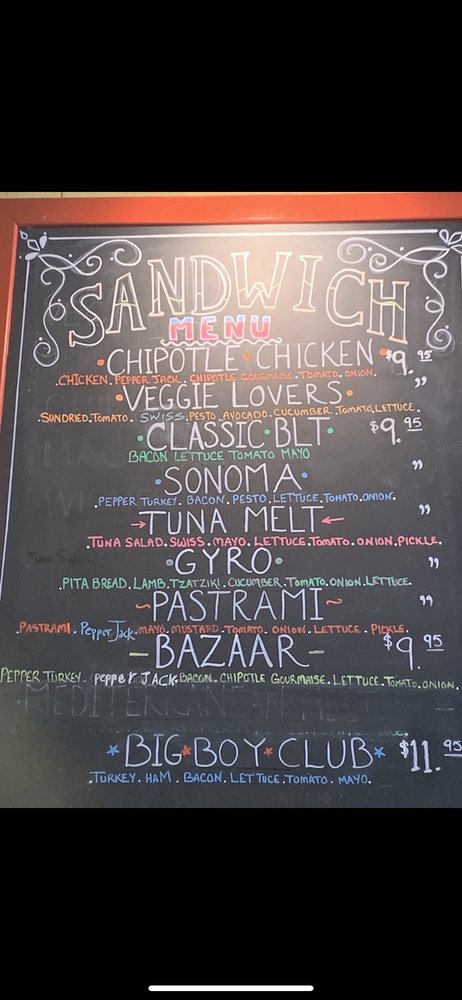 SANDWICH
MENU
CHIPOTLE • CHICKEN • $9.95
CHICKEN. PEPPER JACK. CHIPOTLE GOURMAISE. TOMATO. ONION.
• VEGGIE LOVERS • "
SUNDRIED.TOMATO. SWISS.PESTO.AVOCADO.CUCUMBER.TOMATO.LETTUCE.
• CLASSIC • BLT • $9.95
BACON LETTUCE TOMATO MAYO
• SONOMA • "
.PEPPER TURKEY. BACON. PESTO. LETTUCE.TOMATO.ONION.
→ TUNA MELT ← "
.TUNA SALAD. SWISS. MAYO. LETTUCE.TOMATO. ONION.PICKLE.
Tuna Salad
• GYRO • "
.PITA BREAD. LAMB. TZATZIKI. CUCUMBER. TOMATO.ONION.LETTUCE.
~PASTRAMI~ "
.PASTRAMI. Pepper Jack.MAYO.MUSTARD.TOMATO. ONION. LETTUCE. PICKLE.
- BAZAAR - $9.95
PEPPER TURKEY. pepper JACK.BACON. CHIPOTLE GOURMAISE. LETTUCE.TOMATO.ONION.
★ BIG ★ BOY ★ CLUB ★ $11.95
.TURKEY. HAM. BACON. LETTUCE.TOMATO. MAYO.